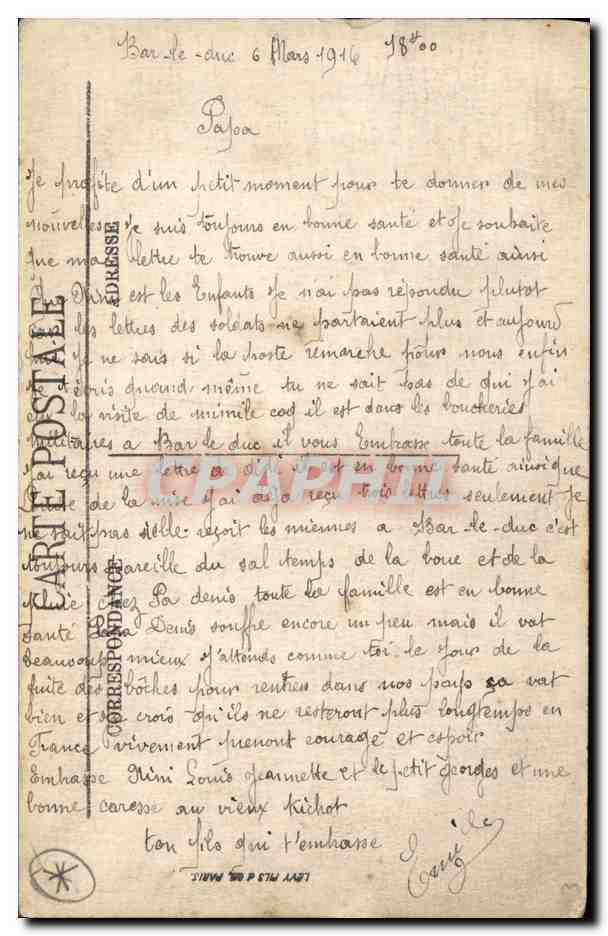 Bar-le-duc 6 Mars 1916 18h00
Papa
Je profite d'un petit moment pour te donner de mes
nouvelles Je suis toujours en bonne santé et Je souhaite
que ma lettre te trouve aussi en bonne santé ainsi
est les Enfants Je n'ai pas répondu plutot
les lettres des soldats ne partaient plus et aujourd
Je ne sais si la poste remarche pour nous enfin
écris quand même tu ne sait pas de qui J'ai
la visite de mimile coq il est dans les boucheries
militaires a Bar le duc il vous Embrasse toute la famille
J'ai reçu une lettre a didi il est en bonne santé ainsi que
de la mise J'ai deja reçu trois lettres seulement Je
ne sait pas si elle reçoit les miennes a Bar-le-duc c'est
toujours pareille du sal temps de la boue et de la
chez Pa denis toute la famille est en bonne
santé Denis souffre encore un peu mais il vat
beaucoup mieux J'attends comme toi le Jour de la
fuite des bôches pour rentrer dans nos pays ça vat
bien et Je crois qu'ils ne resteront plus longtemps en
France vivement prenont courage et espoir
Embrasse Nini Louis Jeannette et le petit Georges et une
bonne caresse au vieux Kichot
ton fils qui t'embrasse
Emile
CARTE POSTALE
ADRESSE
CORRESPONDANCE
LEVY FILS & Cie, PARIS.
CPARAMA